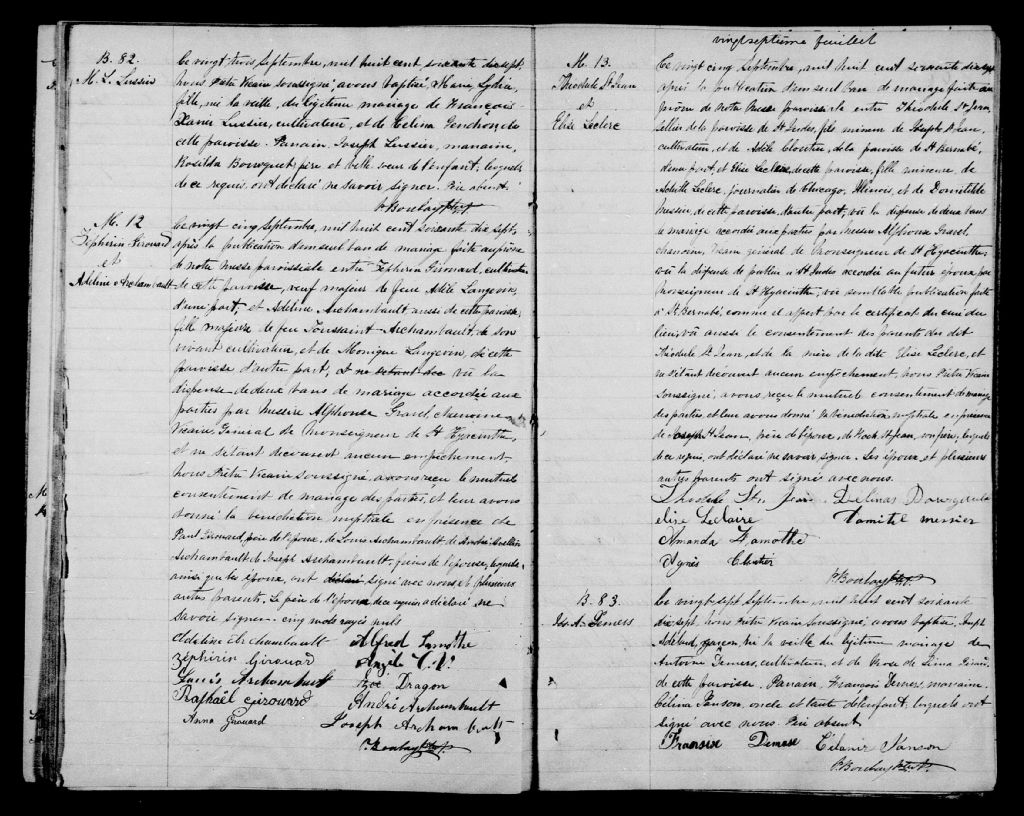 B. 82.
M. L. Lussier
Le vingt trois Septembre, mil huit cent soixante dix sept,
nous Prêtre Vicaire soussigné, avons baptisé, Marie, Lydia,
fille, née la veille, du légitime mariage de François
Xavier Lussier, cultivateur, et de Célina Gendron de
cette paroisse. Parrain, Joseph Lussier, marraine,
Rosilda Bourgeois, père et belle sœur de l'enfant, lesquels
de ce requis, ont déclaré ne savoir signer. Père absent.
M. 12
Zéphirin Girouard
et
Adéline Archambault
Le vingt cinq Septembre, mil huit cent soixante dix sept,
après la publication d'un seul ban de mariage faite au prône
de notre Messe paroissiale entre Zéphirin Girouard, cultivateur
de cette paroisse, veuf majeur de feue Adèle Langevin,
d'une part, et Adéline Archambault aussi de cette paroisse,
fille majeure de feu Toussaint Archambault, de son
vivant cultivateur, et de Monique Langevin, de cette
paroisse d'autre part, vu la
dispense de deux bans de mariage accordée aux
parties par Messire Alphonse Gravel, chanoine
Vicaire Général de Monseigneur de St Hyacinthe,
et ne s'étant découvert aucun empêchement
nous Prêtre Vicaire soussigné, avons reçu le mutuel
consentement de mariage des parties, et leur avons
donné la bénédiction nuptiale en présence de
Paul Girouard, père de l'époux, de Louis Archambault, de André
Archambault, de Joseph Archambault, frères de l'épouse, lesquels
ainsi que les époux, ont déclaré signé avec nous et plusieurs
autres parents. Le père de l'époux de ce requis a déclaré ne
savoir signer. cinq mots rayés nuls
Adeline Archambault Alfred Lamothe
Zéphirin Girouard
Louis Archambault Zoé Dragon
Raphaël Girouard André Archambault
Anna Girouard Joseph Archambault
vingt septième feuillet
M. 13.
Théodule St Jean
et
Elise Leclerc
Le vingt cinq Septembre, mil huit cent soixante dix sept
après la publication d'un seul ban de mariage faite au
prône de notre Messe paroissiale entre Théodule St Jean,
sellier de la paroisse de St Judes, fils mineur de Joseph St Jean,
cultivateur, et de Adèle Cloutier, de la paroisse de St Barnabé,
d'une part, et Elise Leclerc, de cette paroisse, fille mineure de
Achille Leclerc, journalier de Chicago, Illinois, et de Domitilde
Messier, de cette paroisse, d'autre part, vu la dispense de deux bans
de mariage accordée aux parties par Messire Alphonse Gravel
chanoine, Vicaire général de Monseigneur de St Hyacinthe,
vu la dispense de publier à St Judes accordée au futur époux par
Monseigneur de St Hyacinthe, vu semblable publication faite
à St Barnabé, comme il appert par le certificat du curé du
lieu, vu aussi le consentement des parents du dit
Théodule St Jean, et de la mère de la dite Elise Leclerc, et
ne s'étant découvert aucun empêchement, nous Prêtre Vicaire
Soussigné, avons reçu le mutuel consentement de mariage
des parties, et leur avons donné la bénédiction nuptiale en présence
de Joseph St Jean, père de l'époux, de Roch St Jean, lesquels
de ce requis, ont déclaré ne savoir signer. Les époux et plusieurs
autres parents ont signé avec nous.
Théodule St. Jean
elise Leclaire Domitil messier
Amanda Lamothe
Agnès Cloutier
B. 83.
Jos. A. Demers
Le vingt-sept Septembre, mil huit cent soixante
dix sept, nous Prêtre Vicaire Soussigné, avons baptisé, Joseph
garçon, né la veille du légitime mariage de
Antoine Demers, cultivateur, et de Rose de Lima
de cette paroisse. Parrain, François Demers, marraine,
Célina Janson, oncle et tante de l'enfant, lesquels ont
signé avec nous. Père absent
Francois Demers Célanir Janson